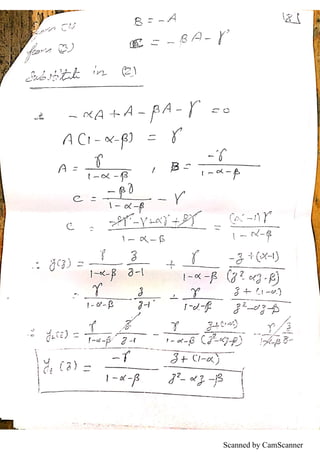 B = -A
[8]
from (2) C = -βA - γ
Substitut in (2)
∴ -αA + A - βA - γ = 0
A(1-α-β) = γ
A = γ / (1-α-β) , B = -γ / (1-α-β)
C = -βγ / (1-α-β) - γ
C = (-βγ - γ + αγ + βγ) / (1-α-β) = (α-1)γ / (1-α-β)
∴ y(z) = γ/(1-α-β) z/(z-1) + γ/(1-α-β) (-z+(α-1))/(z²-αz-β)
= γ/(1-α-β) z/(z-1) - γ/(1-α-β) (z+(1-α))/(z²-αz-β)
∴ y₁(z) = γ/(1-α-β) z/(z-1) - γ/(1-α-β) (z+(1-α))/(z²-αz-β) - γ/(1-α-β) z/(z-1)
y₁(z) = -γ/(1-α-β) (z+(1-α))/(z²-αz-β)
Scanned by CamScanner